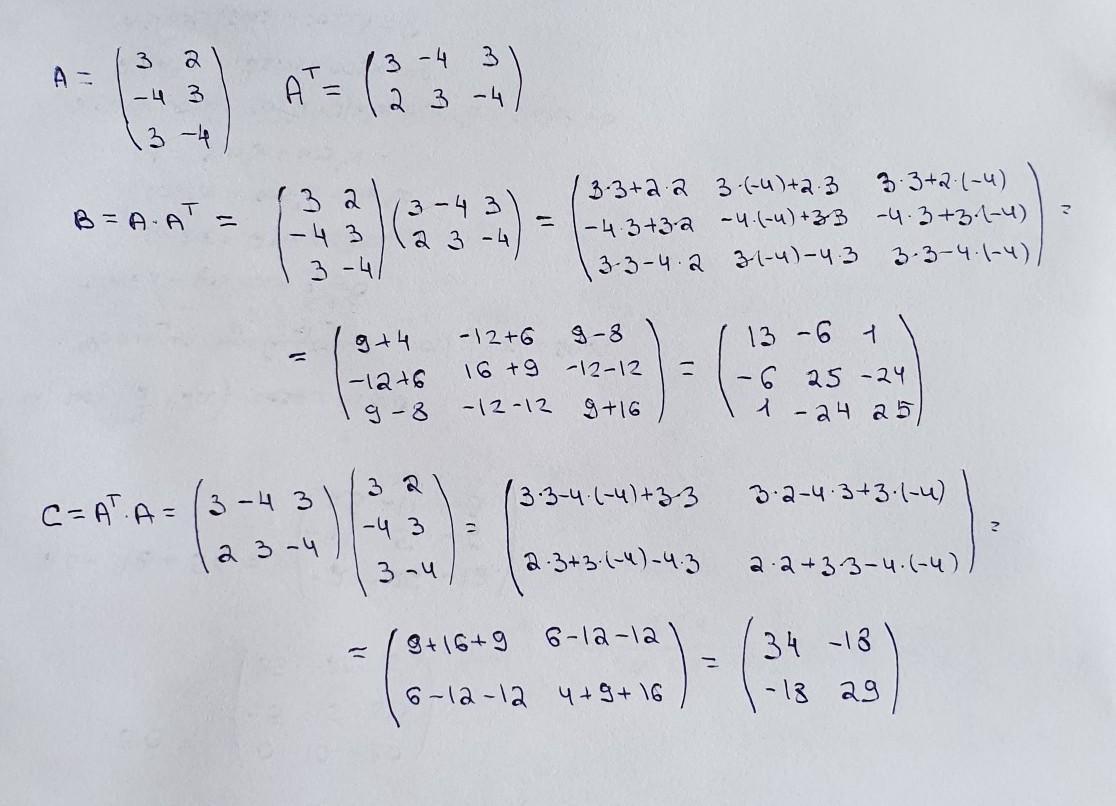 A = (3 2; -4 3; 3 -4) A^T = (3 -4 3; 2 3 -4)
B = A · A^T = (3 2; -4 3; 3 -4) (3 -4 3; 2 3 -4) = (3·3+2·2 3·(-4)+2·3 3·3+2·(-4); -4·3+3·2 -4·(-4)+3·3 -4·3+3·(-4); 3·3-4·2 3·(-4)-4·3 3·3-4·(-4)) =
= (9+4 -12+6 9-8; -12+6 16+9 -12-12; 9-8 -12-12 9+16) = (13 -6 1; -6 25 -24; 1 -24 25)
C = A^T · A = (3 -4 3; 2 3 -4) (3 2; -4 3; 3 -4) = (3·3-4·(-4)+3·3 3·2-4·3+3·(-4); 2·3+3·(-4)-4·3 2·2+3·3-4·(-4)) =
= (9+16+9 6-12-12; 6-12-12 4+9+16) = (34 -18; -18 29)